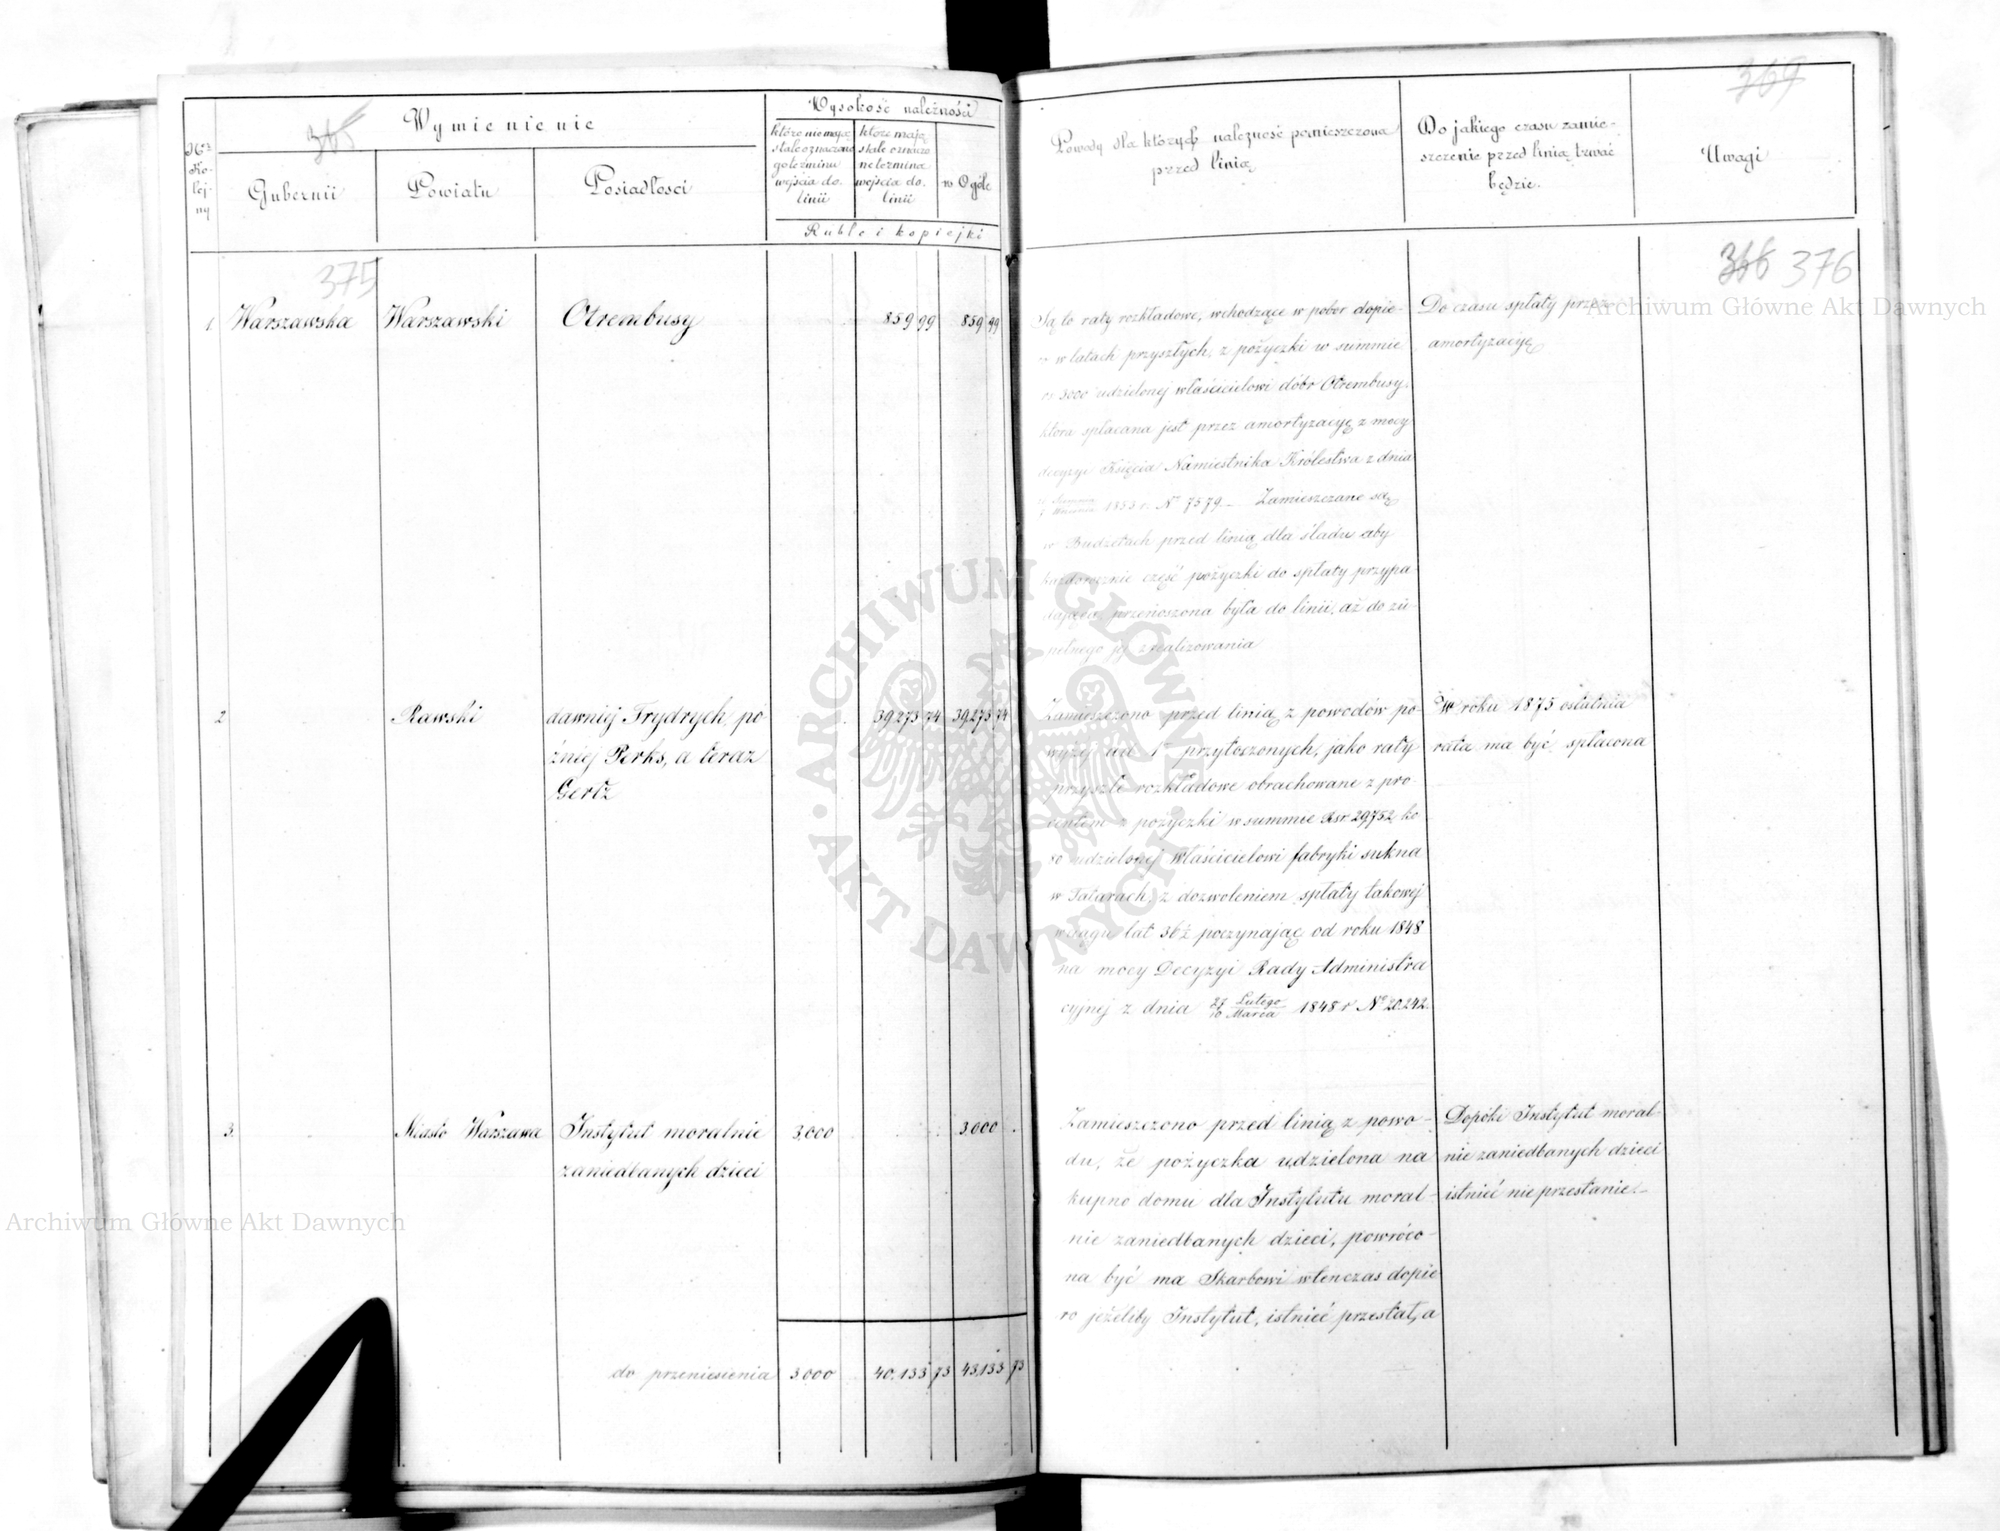 369
368
Wymienienie
Wysokość należności
Nra Kolejny
Gubernii
Powiatu
Posiadłości
które nie mają
stale oznaczone
go terminu
wejścia do
linii
które mają
stale oznaczo
ne termina
wejścia do
linii
w Ogóle
Ruble i kopiejki
Powody dla których należność pomieszczona
przed linią
Do jakiego czasu zamie-
szczenie przed linią trwać
będzie.
Uwagi
375
368 376
1. Warszawska Warszawski Otrembusy 859 99 859 99
Są to raty rozkładowe, wchodzące w pobór dopie-
w latach przyszłych, z pożyczki w summie
rs 3000 udzielonej właścicielowi dóbr Otrembusy,
która spłacana jest przez amortyzacyę z mocy
decyzyi Księcia Namiestnika Królestwa z dnia
1855 r. No 7579 – Zamieszczane są
w Budżetach przed linią dla śladu aby
każdorocznie część pożyczki do spłaty przypa-
dająca, przenoszona była do linii, aż do zu-
pełnego jej zrealizowania
Do czasu spłaty przez
amortyzacyę
2 Rawski dawniej Frydrych, po- 39,273 74 39,273 74
źniej Perks, a teraz
Gertz
Zamieszczono przed linią z powodów po-
wyżej ad 1m przytoczonych, jako raty
przyszłe rozkładowe obrachowane z pro
centem z pożyczki w summie Rsr 29,752 ko
80 udzielonej właścicielowi fabryki sukna
w Tatarach, z dozwoleniem spłaty takowej
w ciągu lat 36½ poczynając od roku 1848
na mocy Decyzyi Rady Administra
cyjnej z dnia 27 Lutego / 10 Marca 1848 r No 20,242.
W roku 1875 ostatnia
rata ma być spłacona
3. Miasto Warszawa Instytut moralnie 3,000 3,000
zaniedbanych dzieci
Zamieszczono przed linią z powo-
du, że pożyczka udzielona na
kupno domu dla Instytutu moral-
nie zaniedbanych dzieci, powróco-
na być ma Skarbowi wtenczas dopie
ro jeżeliby Instytut, istnieć przestał, a
Dopóki Instytut moral-
nie zaniedbanych dzieci
istnieć nie przestanie.
do przeniesienia 3,000 40,133 73 43,133 73
Archiwum Główne Akt Dawnych
Archiwum Główne Akt Dawnych
ARCHIWUM GŁÓWNE AKT DAWNYCH